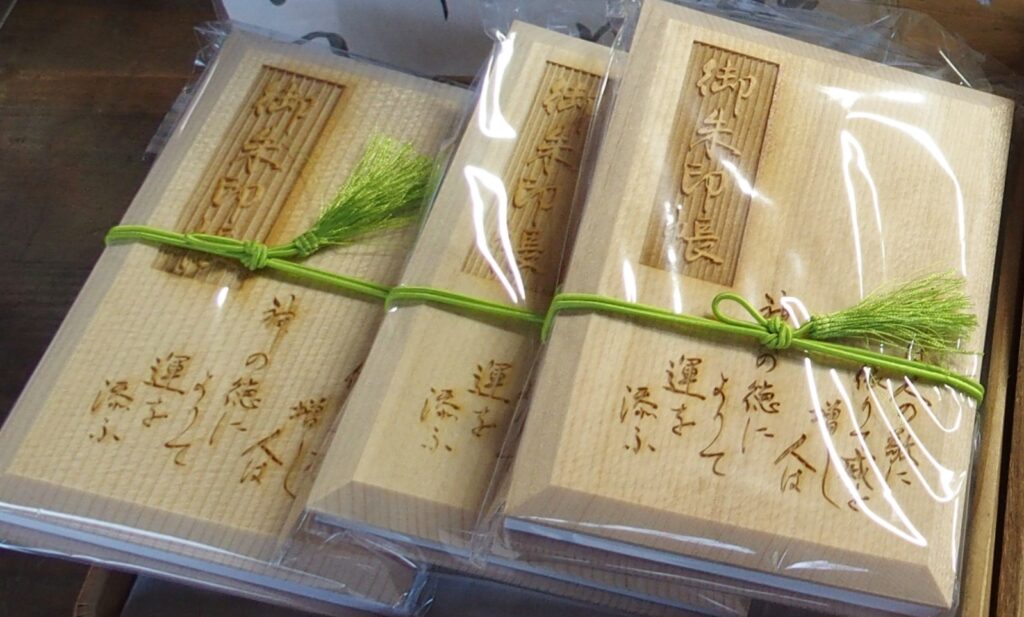 御朱印
増し
人は
神の徳に
よりて
運を
添ふ
御朱印
運を
添ふ
御朱印帳
人の敬に
よりて威を
増し
人は
神の徳に
よりて
運を
添ふ